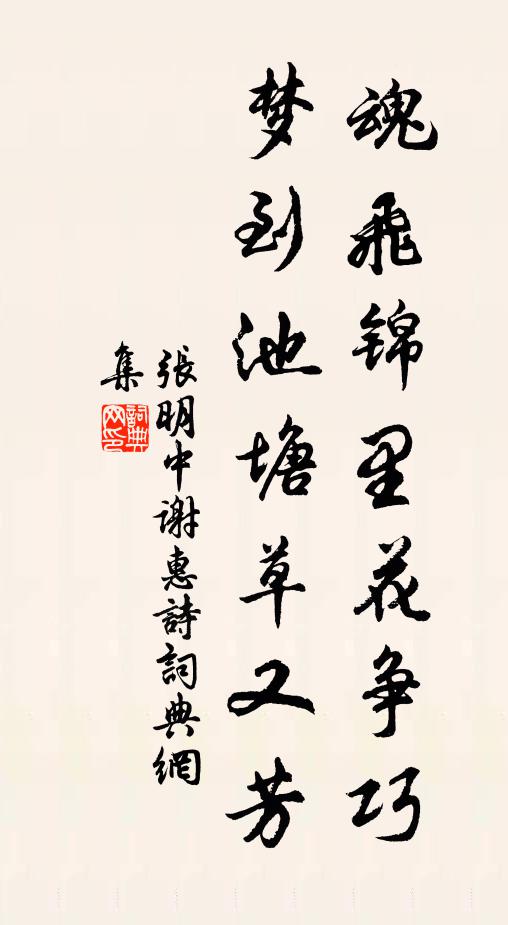 魂飛锦里花争巧
梦到池塘草又芳
張明中谢惠詩詞典網
集
詞典
网印